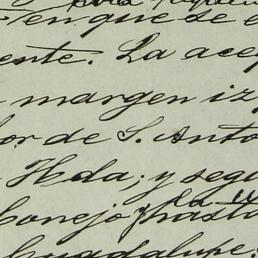 en que se e
ente. La acep
margen iz
or de S. Anto
Hda; y segu
Conejo hasta
Guadalupe.